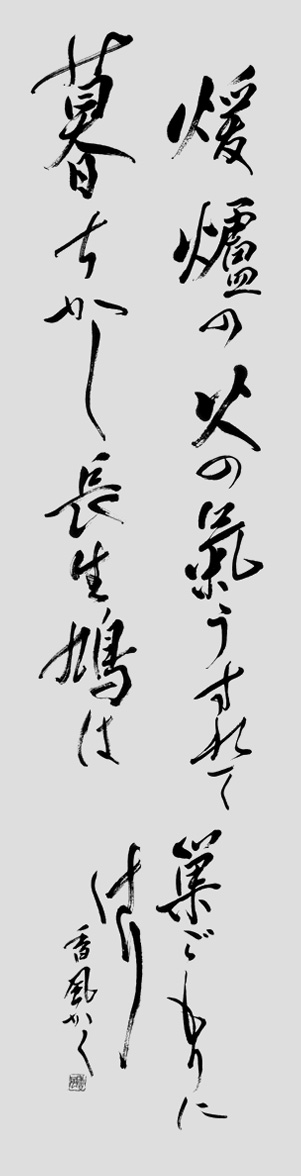 煖爐の火の氣うすれて
暮ちかし長生鳩は
巣ごもりに
けり
香風かく